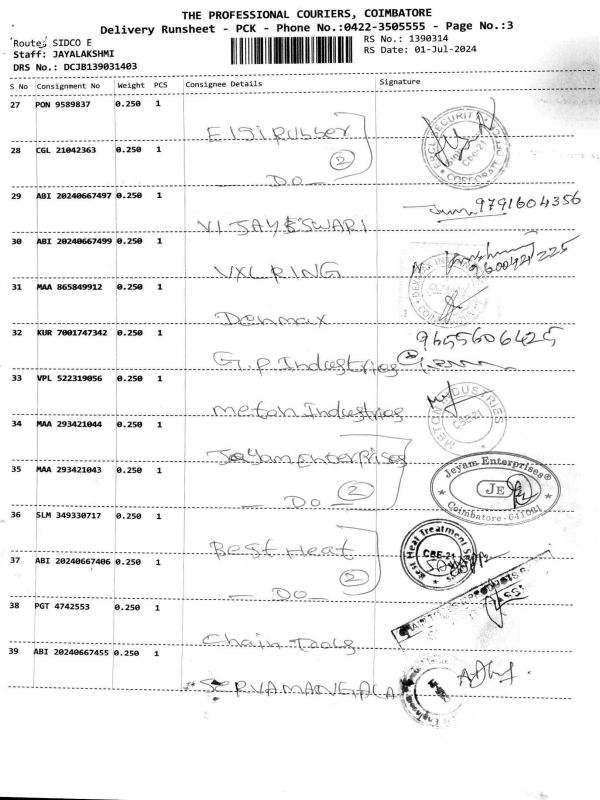 THE PROFESSIONAL COURIERS, COIMBATORE
Delivery Runsheet - PCK - Phone No.:0422-3505555 - Page No.:3
Route: SIDCO E
RS No.: 1390314
Staff: JAYALAKSHMI
RS Date: 01-Jul-2024
DRS No.: DCJB139031403
S No Consignment No Weight PCS Consignee Details Signature
27 PON 9589837 0.250 1
Elgi Rubber
28 CGL 21042363 0.250 1
2
Do
CBE-21
29 ABI 20240667497 0.250 1
VIJAYESWARI
9791604356
30 ABI 20240667499 0.250 1
VXL RING
9600421225
31 MAA 865849912 0.250 1
Denmax
32 KUR 7001747342 0.250 1
9655606425
G.P. Industries
33 VPL 522319056 0.250 1
metcn Industries
METCN INDUSTRIES
CBE-21
34 MAA 293421044 0.250 1
Jeyam Enterprises
35 MAA 293421043 0.250 1
Do 2
Jeyam Enterprises®
JE
Coimbatore - 641021
36 SLM 349330717 0.250 1
Best Heat
Best Heat Treatment
CBE-21
37 ABI 20240667406 0.250 1
2
Do
38 PGT 4742553 0.250 1
Chain Tools
39 ABI 20240667455 0.250 1
SERVAMANGALA